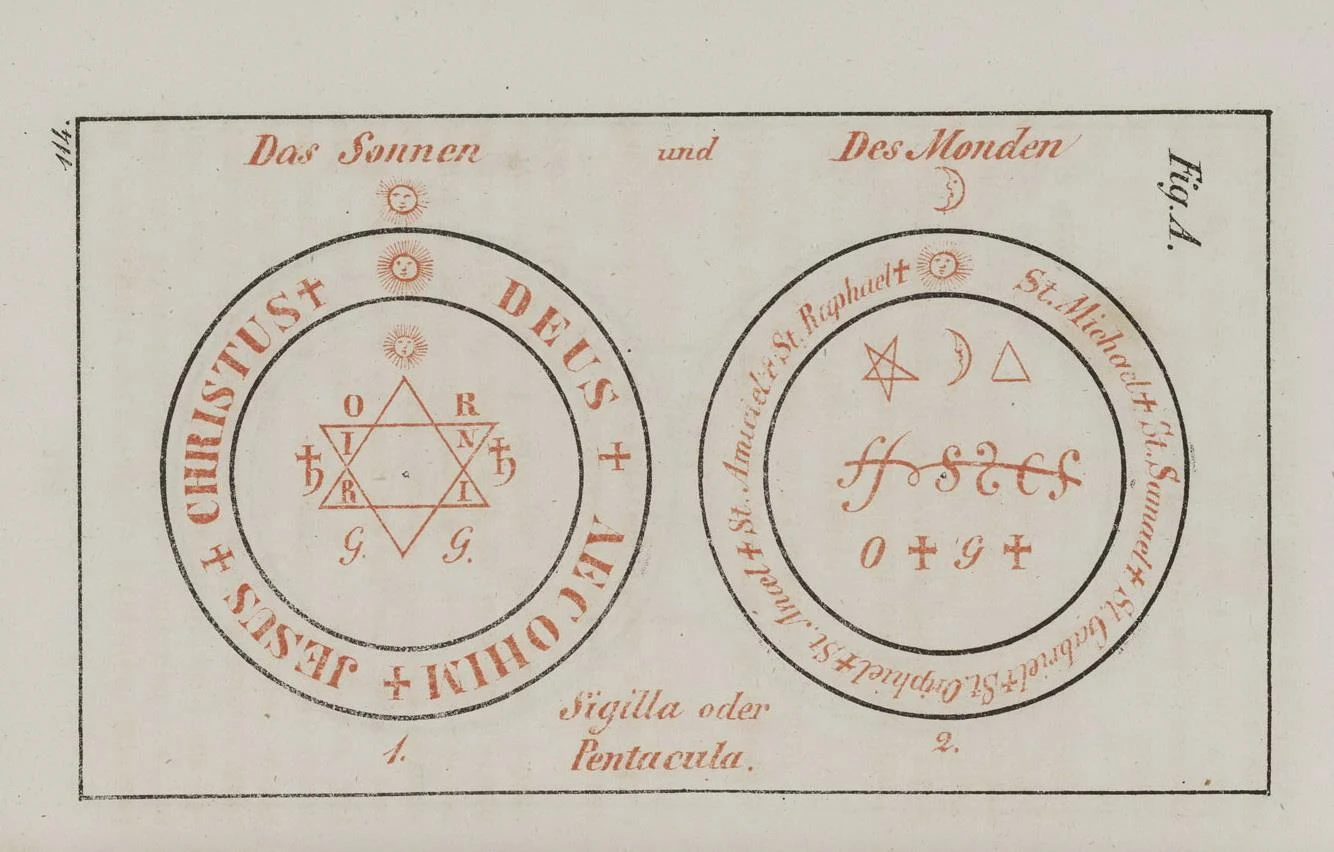 114.
Das Sonnen und Des Monden
Fig. A.
DEUS + AECOHIM + JESUS + CHRISTUS +
O R
I N
R I
♄ ♄
G. G.
St. Michael + St. Samael + St. Gabriel + St. Oriphiel + St. Anael + St. Amiciel & St. Raphael +
O + G +
Sigilla oder
Pentacula.
1. 2.